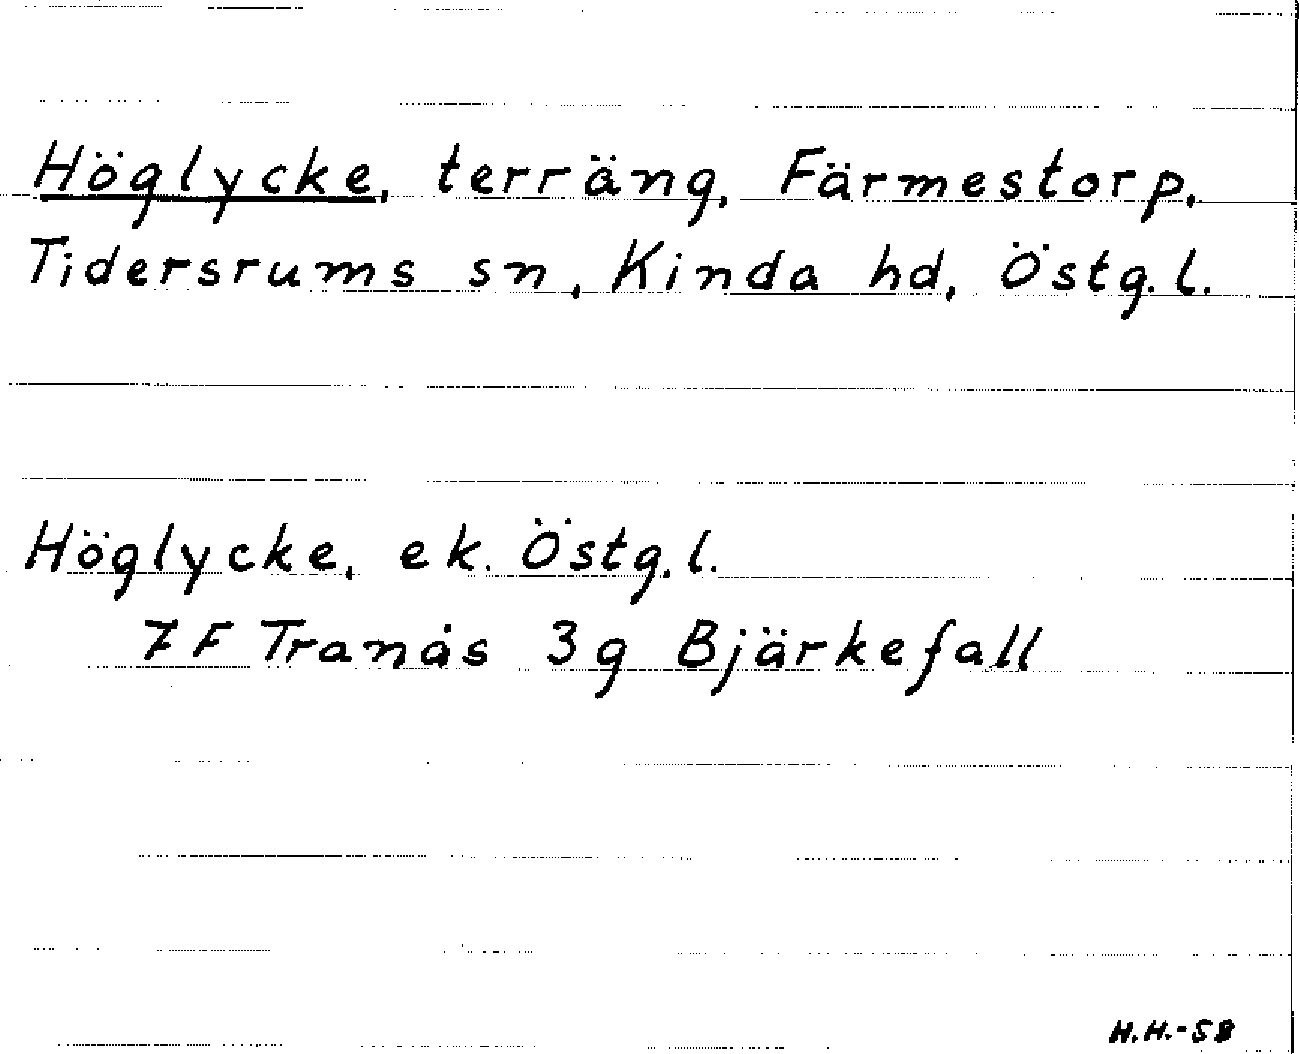 Höglycke, terräng, Färmestorp,
Tidersrums sn, Kinda hd, Östg.l.
Höglycke, ek. Östg.l.
7 F Tranås 3g Bjärkefall
H.H.-58